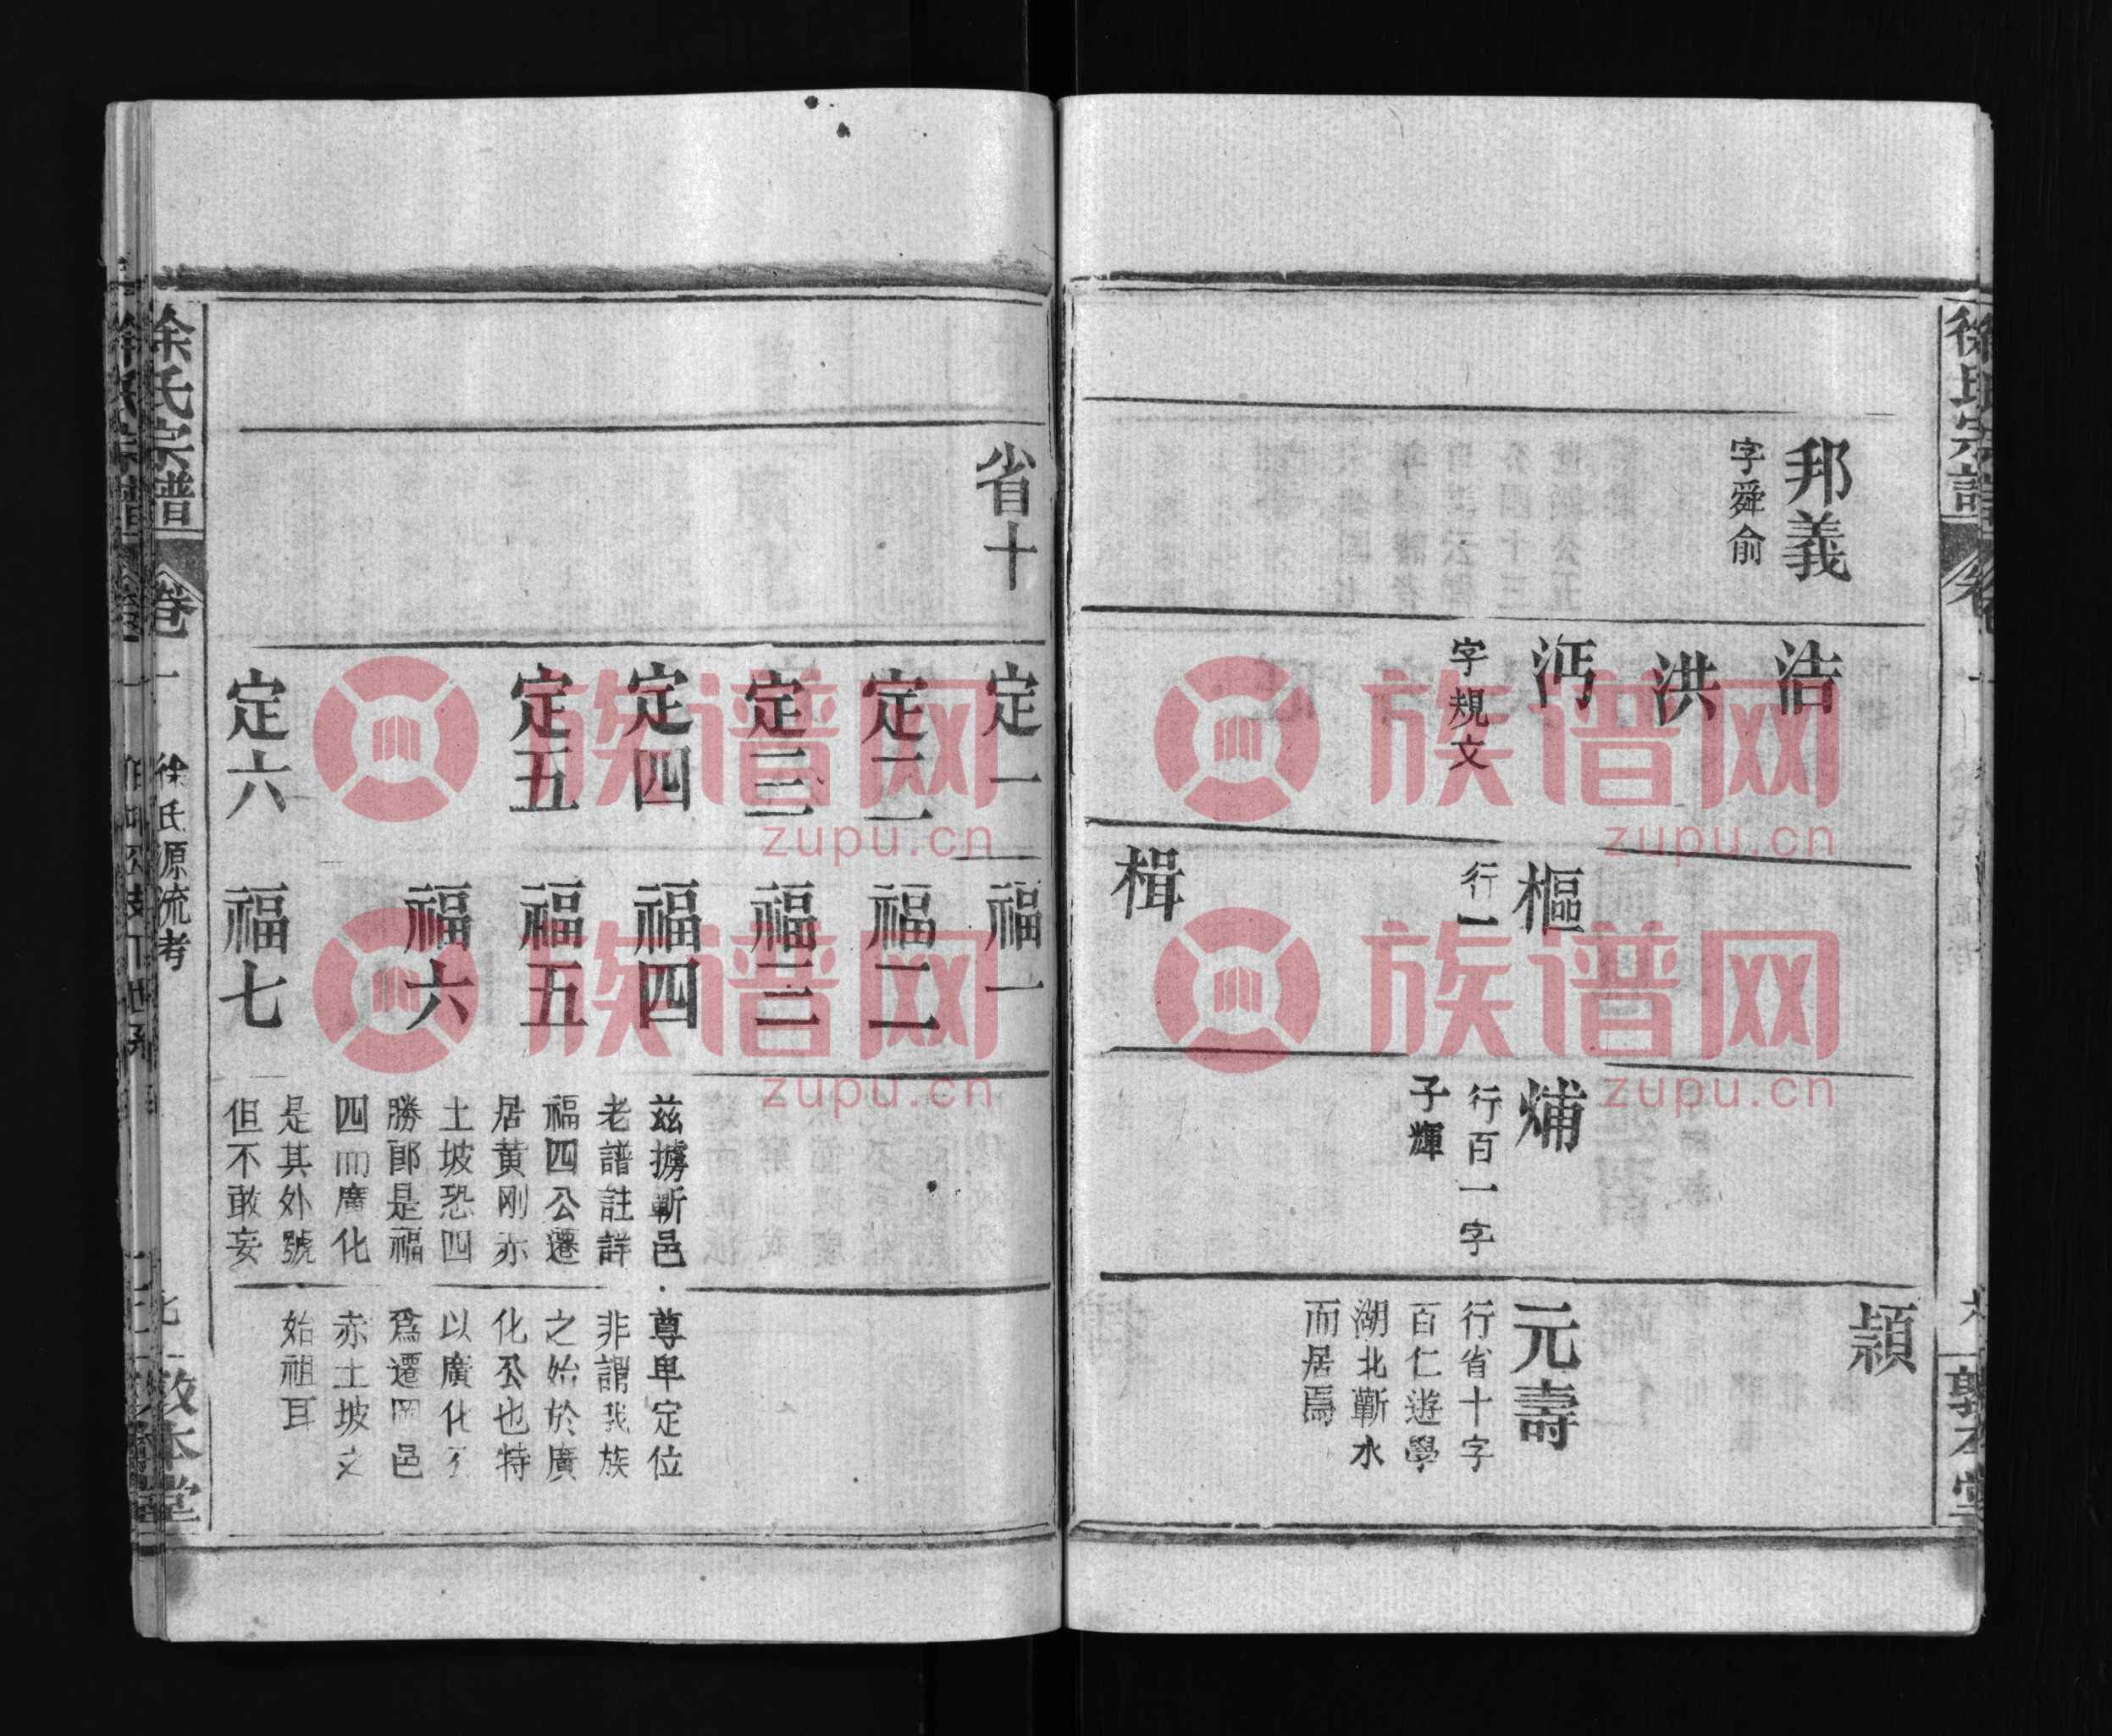 徐氏宗譜
卷一
敦本堂
邦義
字舜俞
浩
洪
沔
字規文
樞
行一
楫
㶵
行百一字
子輝
穎
元壽
行省十字
百仁遊學
湖北蘄水
而居焉
省十
定一
定二
定三
定四
定五
定六
福一
福二
福三
福四
福五
福六
福七
兹據蘄邑
老譜註詳
福四公遷
居黄剛赤
土坡恐四
勝郎是福
四而廣化
是其外號
但不敢妄
尊卑定位
非謂我族
之始於廣
化公也特
以廣化公
爲遷岡邑
赤土坡之
始祖耳
徐氏宗譜
卷一
徐氏源流考
敦本堂
族谱网
zupu.cn
族谱网
zupu.cn
族谱网
zupu.cn
族谱网
zupu.cn